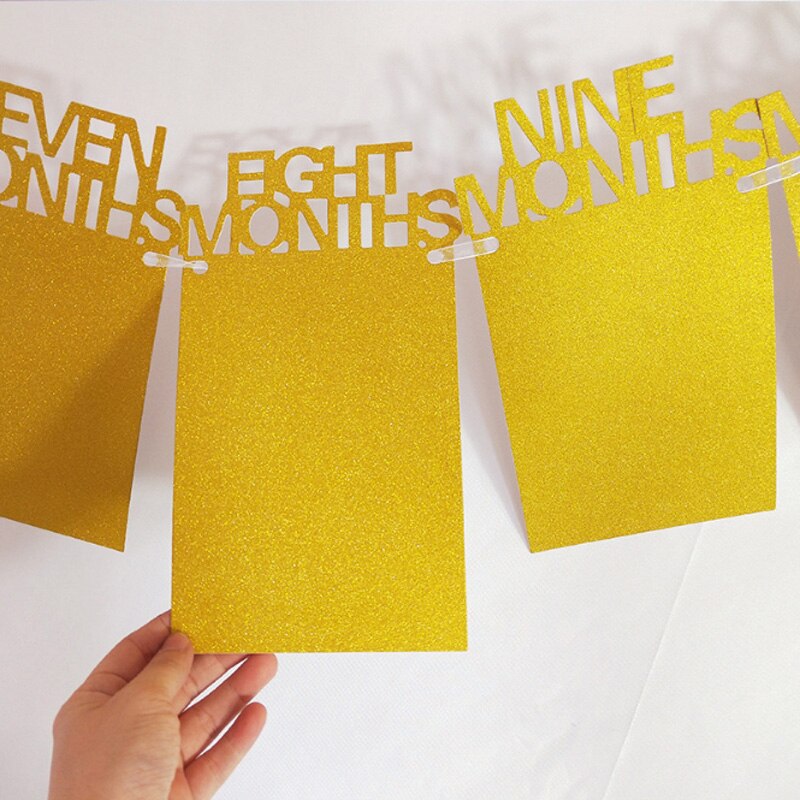 EVEN
ONTHS
EIGHT
MONTHS
NINE
MONTHS
M